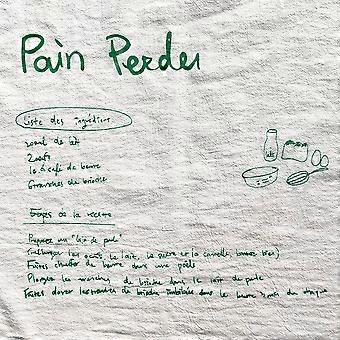 Pain Perdu
Liste des ingrédients
200ml de lait
2 oeufs
1c à café de beurre
6 tranches de brioche
Etapes de la recette
Préparez un "bain de pate"
les oeufs, le lait, le sucre et la cannelle
Faites chauffer de beurre dans une poêle
Plongez les tranches de brioche dans le bain de pate
Faites dorer les tranches de brioche imbibées dans le beurre 3min
lait